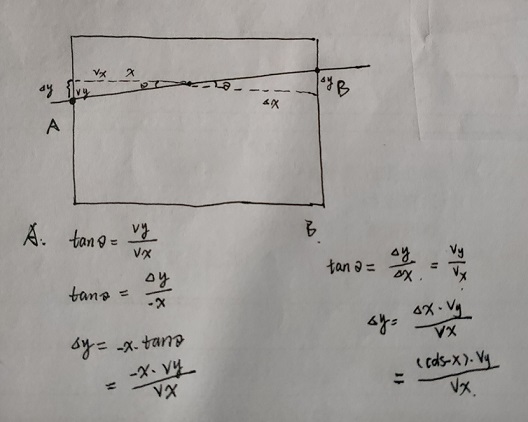 Vx x
Δy { Vy θ θ Δy B
A Δx
B.
A. tanθ = Vy / Vx
tanθ = Δy / -x
Δy = -x · tanθ
= -x · Vy / Vx
tanθ = Δy / Δx = Vy / Vx
Δy = Δx · Vy / Vx
= (cds-x) · Vy / Vx